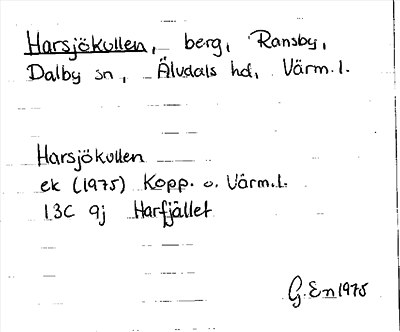 Harsjökullen, berg, Ransby,
Dalby sn, Älvdals hd, Värm. l.
Harsjökullen
ek (1975) Kopp. o. Värm.l.
13C 9j Harfjället
G. En 1975